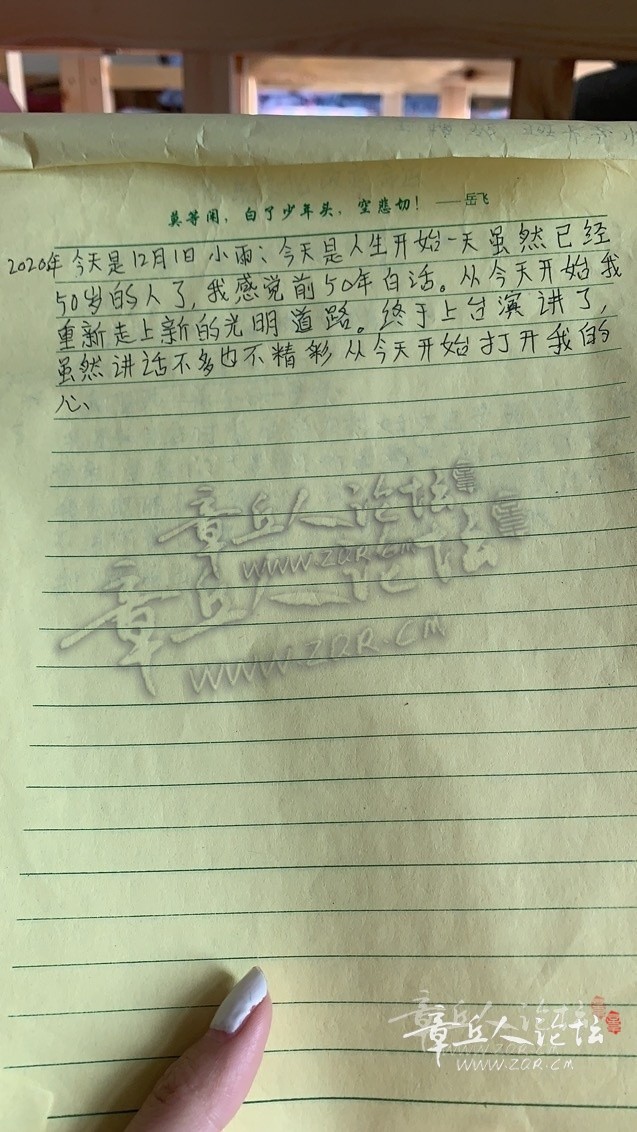 莫等闲，白了少年头，空悲切！ ——岳飞
2020年 今天是12月1日 小雨、今天是人生开始一天 虽然已经
50岁的人了，我感觉前50年白活。从今天开始我
重新走上新的光明道路。终于上台演讲了，
虽然讲话不多也不精彩 从今天开始打开我的
心、
章丘人论坛
www.ZQR.CM
章丘人论坛
www.ZQR.CM
章丘人论坛
www.ZQR.CM